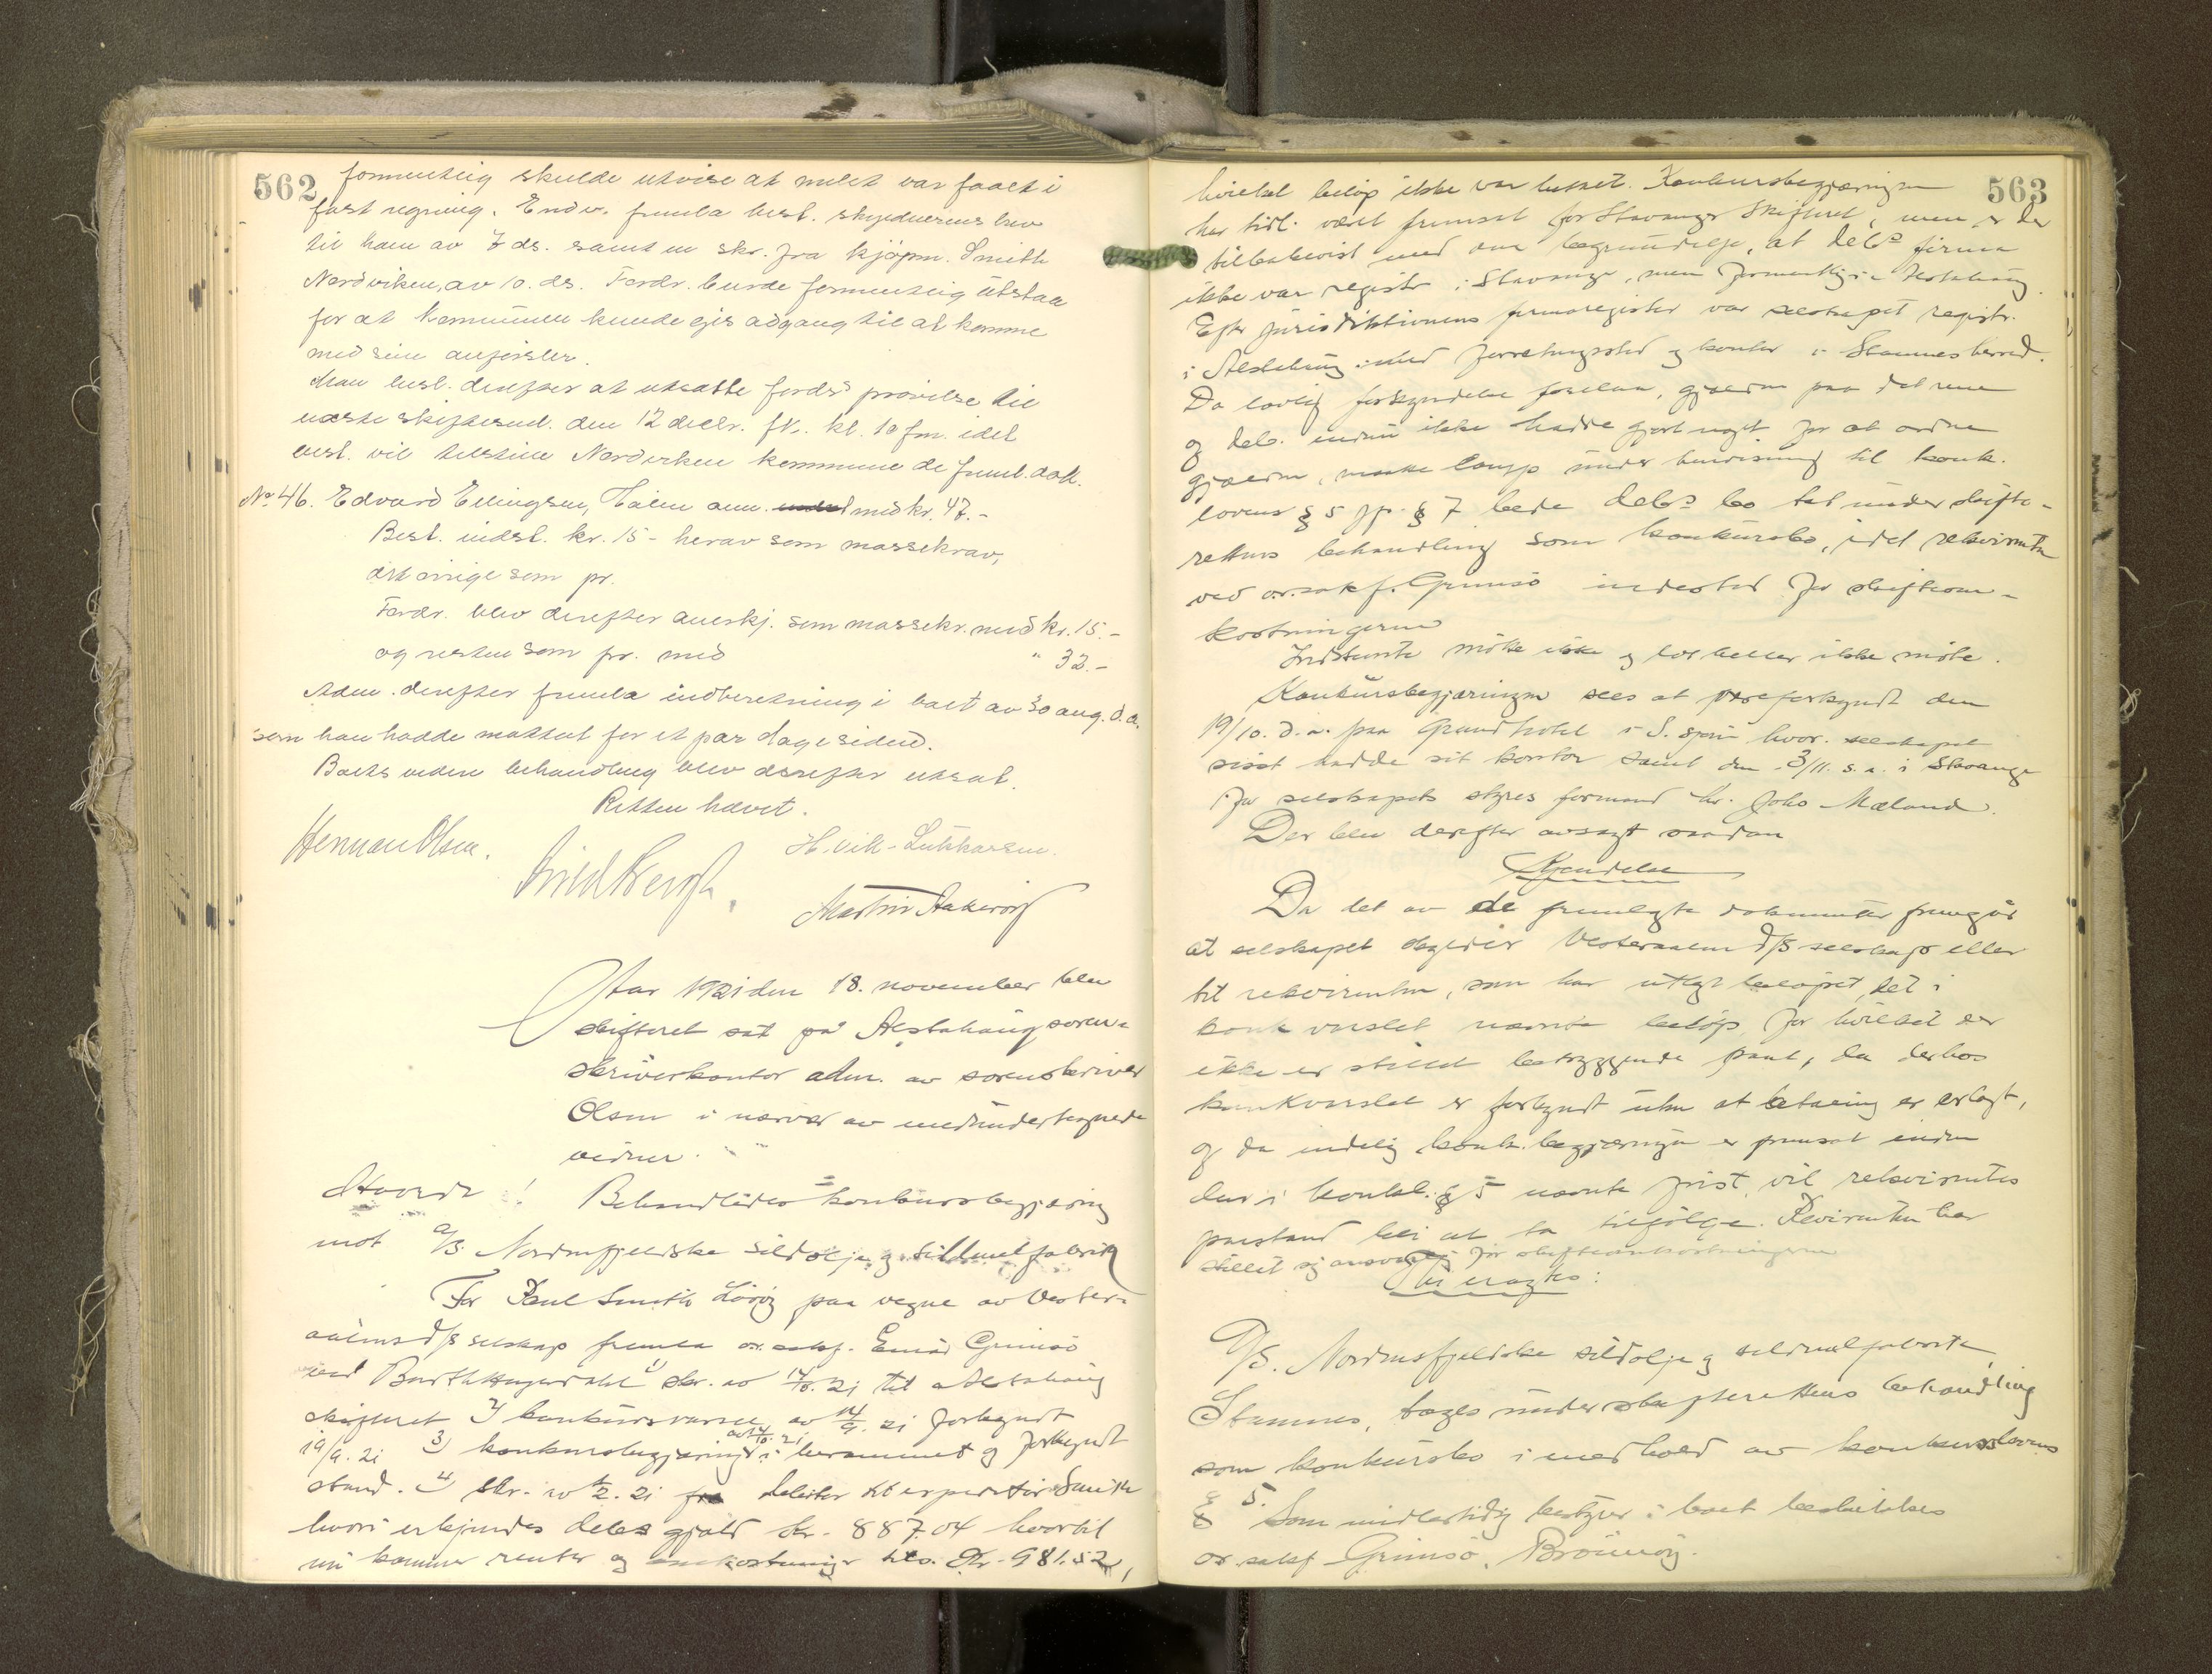 562
formentlig skulde utvise at melet var faaet i
fast regning. Endv. fremla best. skyldnerens brev
til ham av 7 ds. samt en skr. fra kjøpm. Smith
Nordviken, av 10. ds. Fordr. burde formentlig utstaa
for at kommunen kunde gis adgang til at komme
med sine anførsler.
Man besl. derefter at utsætte fords prøvelse til
næste skiftesml. den 12 decbr. fk. kl. 10 fm. idet
best. vil tilstille Nordviken kommune de freml. dok.
No 46. Edvard Ellingsen, anm. med kr. 47.-
Best. indst. kr. 15 - herav som massekrav,
det øvrige som pr.
Fordr. blev derefter anerkj. som massekr. med kr. 15.-
og resten som pr. med " 32.-
Adm. derefter fremla indberetning i boet av 30 aug. d.a.
som han hadde mottat for et par dage siden.
Boets videre behandling blev derefter utsat.
Retten hævet.
Herman Olsen. H. Vik-
Martin
Aar 1921 den 18. november blev
skifteret sat på Alstahaug soren-
skriverkontor adm. av sorenskriver
Olsen i nærvær av medundertegnede
vidner.
Hvorda! Behandledes konkursbegjæring
mot A/S. Nordenfjeldske sildolje og sildmelfabrik
For Paul Smith paa vegne av Vester-
aalens d/s selskap fremla o.r. sakf. Einar Grimsø
ved 1) skr. av 14/10. 21 til Alstahaug
skifteret 2) konkursvarsel av 14/9. 21 forkyndt
19/9. 21 3) konkursbegjæring av 14/10. 21 i berammet og forkyndt
stand. 4) skr. av 2. 21 fra debitor til expeditør Smith
hvori erkjendes debs gjæld kr. 887.04 hvortil
nu kommer renter og omkostninger tils. Kr. 981.52,
563
hvilket beløp ikke var betalt. Konkursbegjæringen
har tidl. været fremsat for Stavanger Skifteret, men er der
tilbakevist med den begrundelse, at debs firma
ikke var registr. i Stavanger, men formentlig i Alstahaug.
Efter jurisdiktionens firmaregister var selskapet registr.
i Alstahaug med forretningssted og kontor i Stamnes herred.
Da lovlig forkyndelse forelaa, gjælden paa det rene
og deb. endnu ikke hadde gjort noget for at ordne
gjælden, maatte komp under henvisning til konk.
lovens § 5 jfr. § 7 bede debs bo tat under skifte-
rettens behandling som konkursbo, idet rekvirenten
ved o.r. sakf. Grimsø indestod for skifteom-
kostningerne
Indstevnte møtte ikke og lot heller ikke møte.
Konkursbegjæringen sees at være forkyndt den
19/10. d.a. paa Grand hotel i S. sjøen hvor selskapet
sidst hadde sit kontor samt den 3/11. s.a. i Stavanger
for selskapets styres formand hr. Johs Mæland.
Der blev derefter avsagt saadan
Kjendelse
Da det av de fremlagte dokumenter fremgår
at selskapet skylder Vesteraalens d/s selskap eller
til rekvirenten, som har utlagt beløpet, det i
konk varslet nævnte beløp, for hvilket der
ikke er stillet betryggende pant, da derhos
konkvarslet er forkyndt uten at betaling er erlagt,
og da endelig konk. begjæringen er fremsat inden
den i konkl. § 5 nævnte frist, vil rekvirentes
paastand bli at ta tilfølge. Rekvirenten har
stillet sig ansvarlig for skifteomkostningerne
Ti eragtes:
A/S. Nordenfjeldske sildolje og sildmelfabrik
Stamnes, tages under skifterettens behandling
som konkursbo i medhold av konkurslovens
§ 5. Som midlertidig bestyrer i boet beskikkes
o.r. sakf Grimsø, Brønnøy.